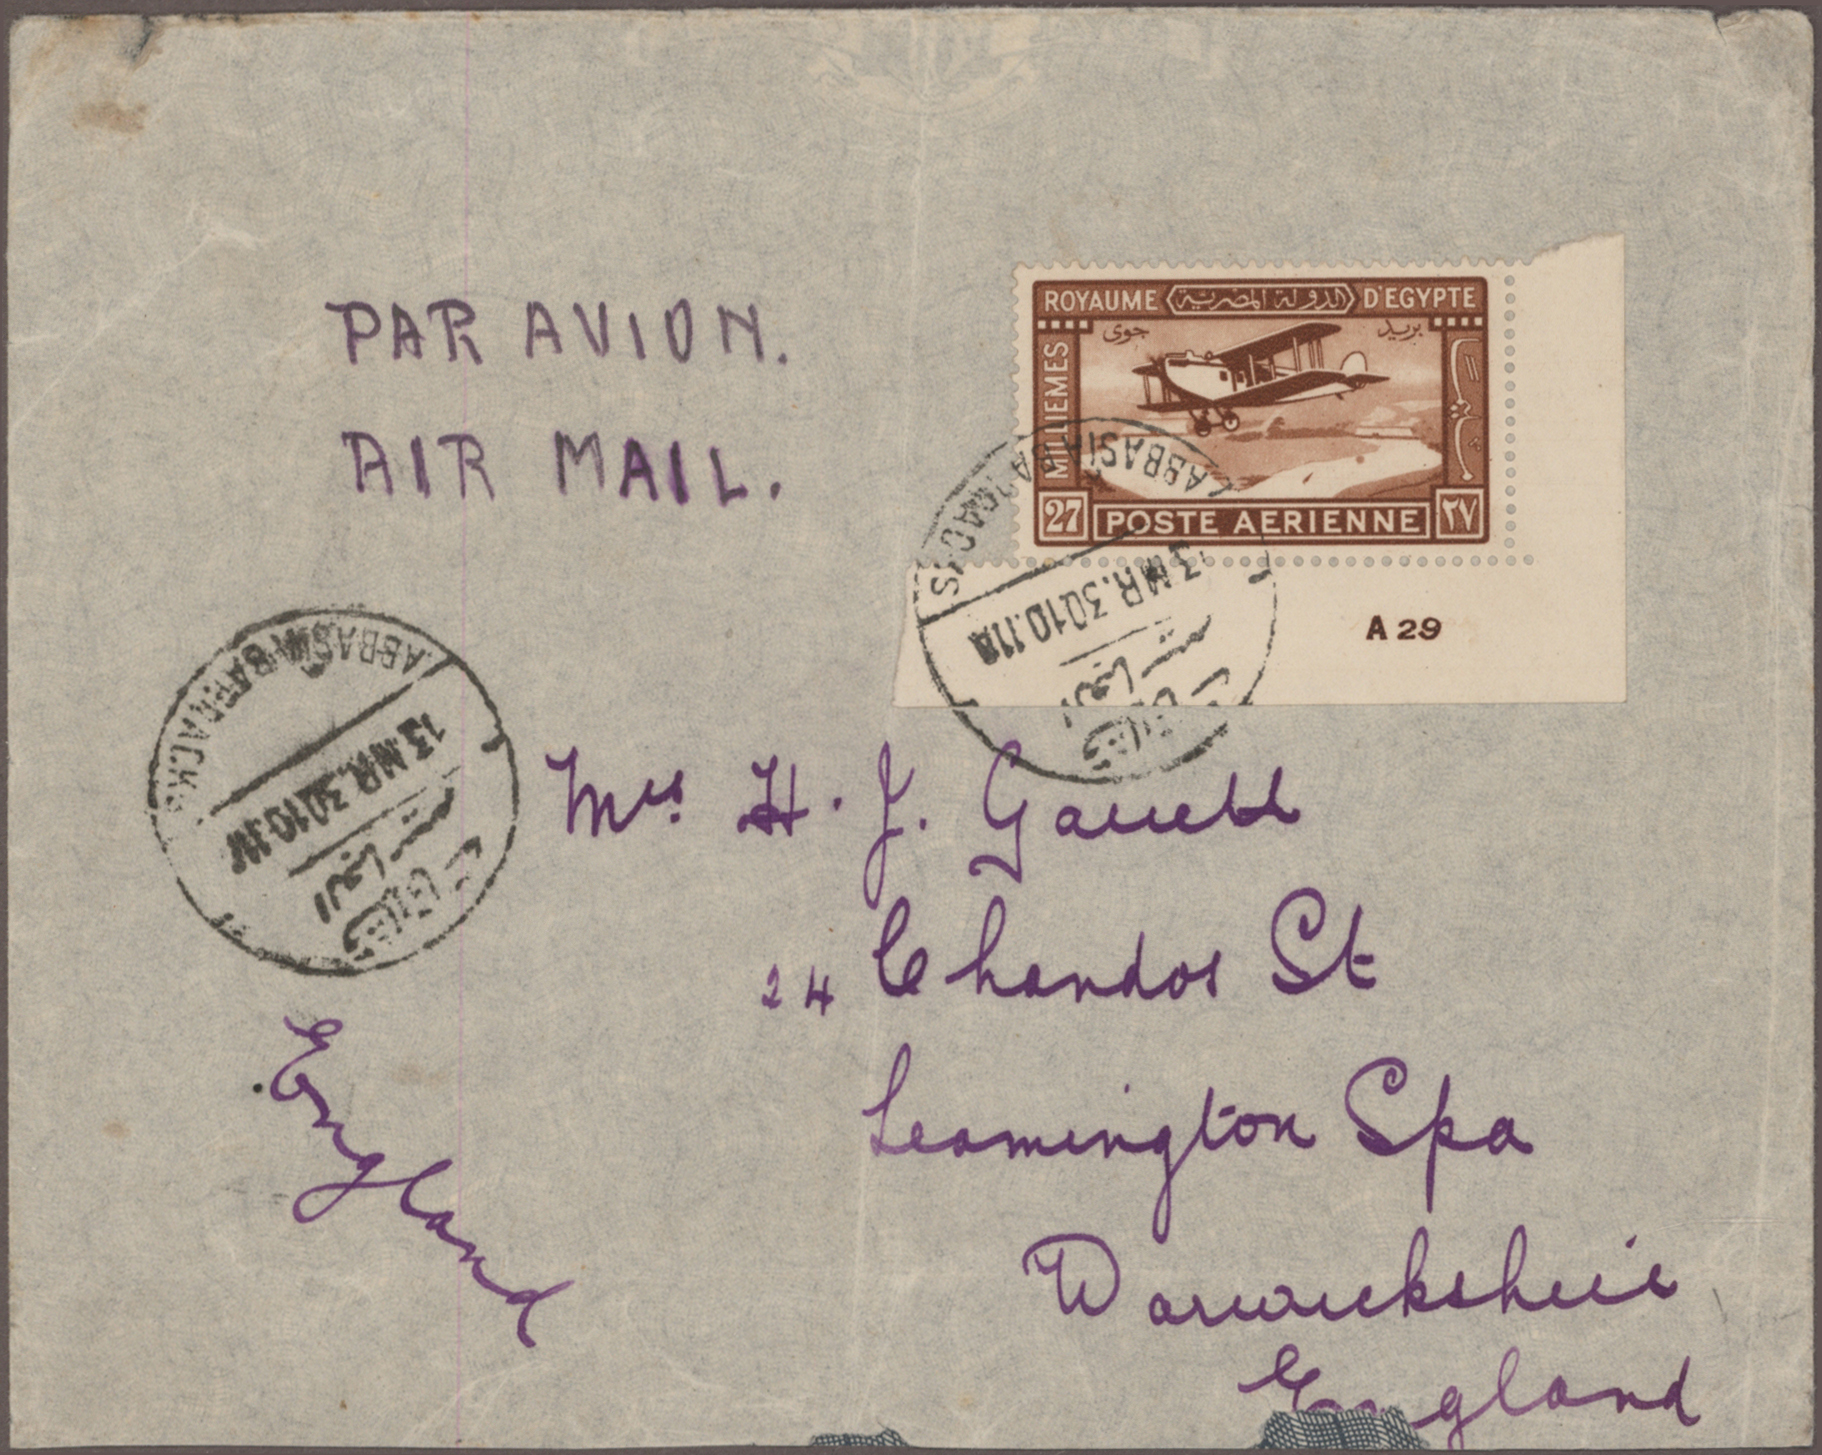 PAR AVION.
AIR MAIL.
ROYAUME الدولة المصرية D'EGYPTE
بريد جوى
MILLIEMES
27 POSTE AERIENNE ٢٧
A 29
ABBASIA BARRACKS
13 MR. 30 10.11A
العباسية
ABBASIA BARRACKS
13 MR. 30 10.11
العباسية
Mrs H. J. Garrett
24 Chandos St
Leamington Spa
Warwickshire
England
England